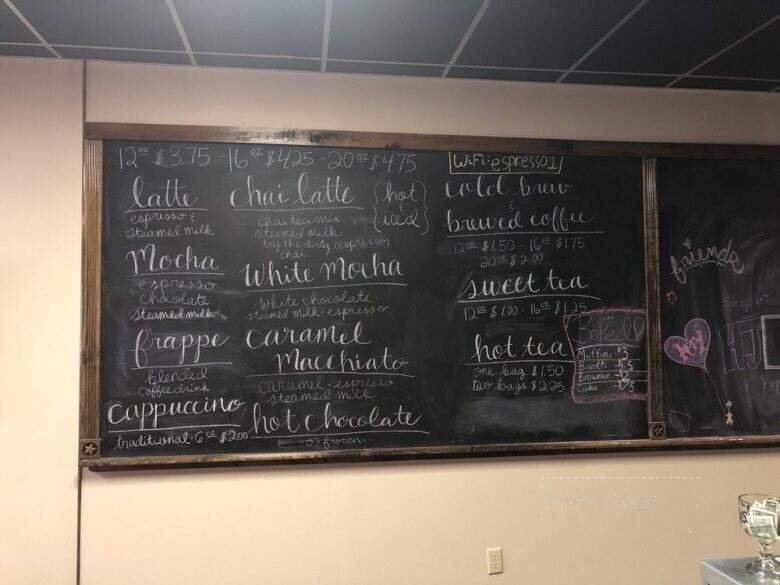 12oz $3.75 - 16oz $4.25 - 20oz $4.75
latte
espresso &
steamed milk
Mocha
espresso
chocolate
steamed milk
frappe
blended
coffee drink
cappuccino
traditional · 6oz $2.00
chai latte
chai tea mix
steamed milk
try the dirty (espresso)
chai
{hot
&
iced}
White Mocha
white chocolate
steamed milk · espresso
caramel
Macchiato
caramel · espresso
steamed milk
hot chocolate
or frozen
WiFi: espresso1
cold brew
&
brewed coffee
12oz $1.50 - 16oz $1.75
20oz $2.00
sweet tea
12oz $1.00 - 16oz $1.25
hot tea
one bag $1.50
two bags $2.25
Baked
Muffins
Biscotti
Brownie
Cookie
friends
Sleep